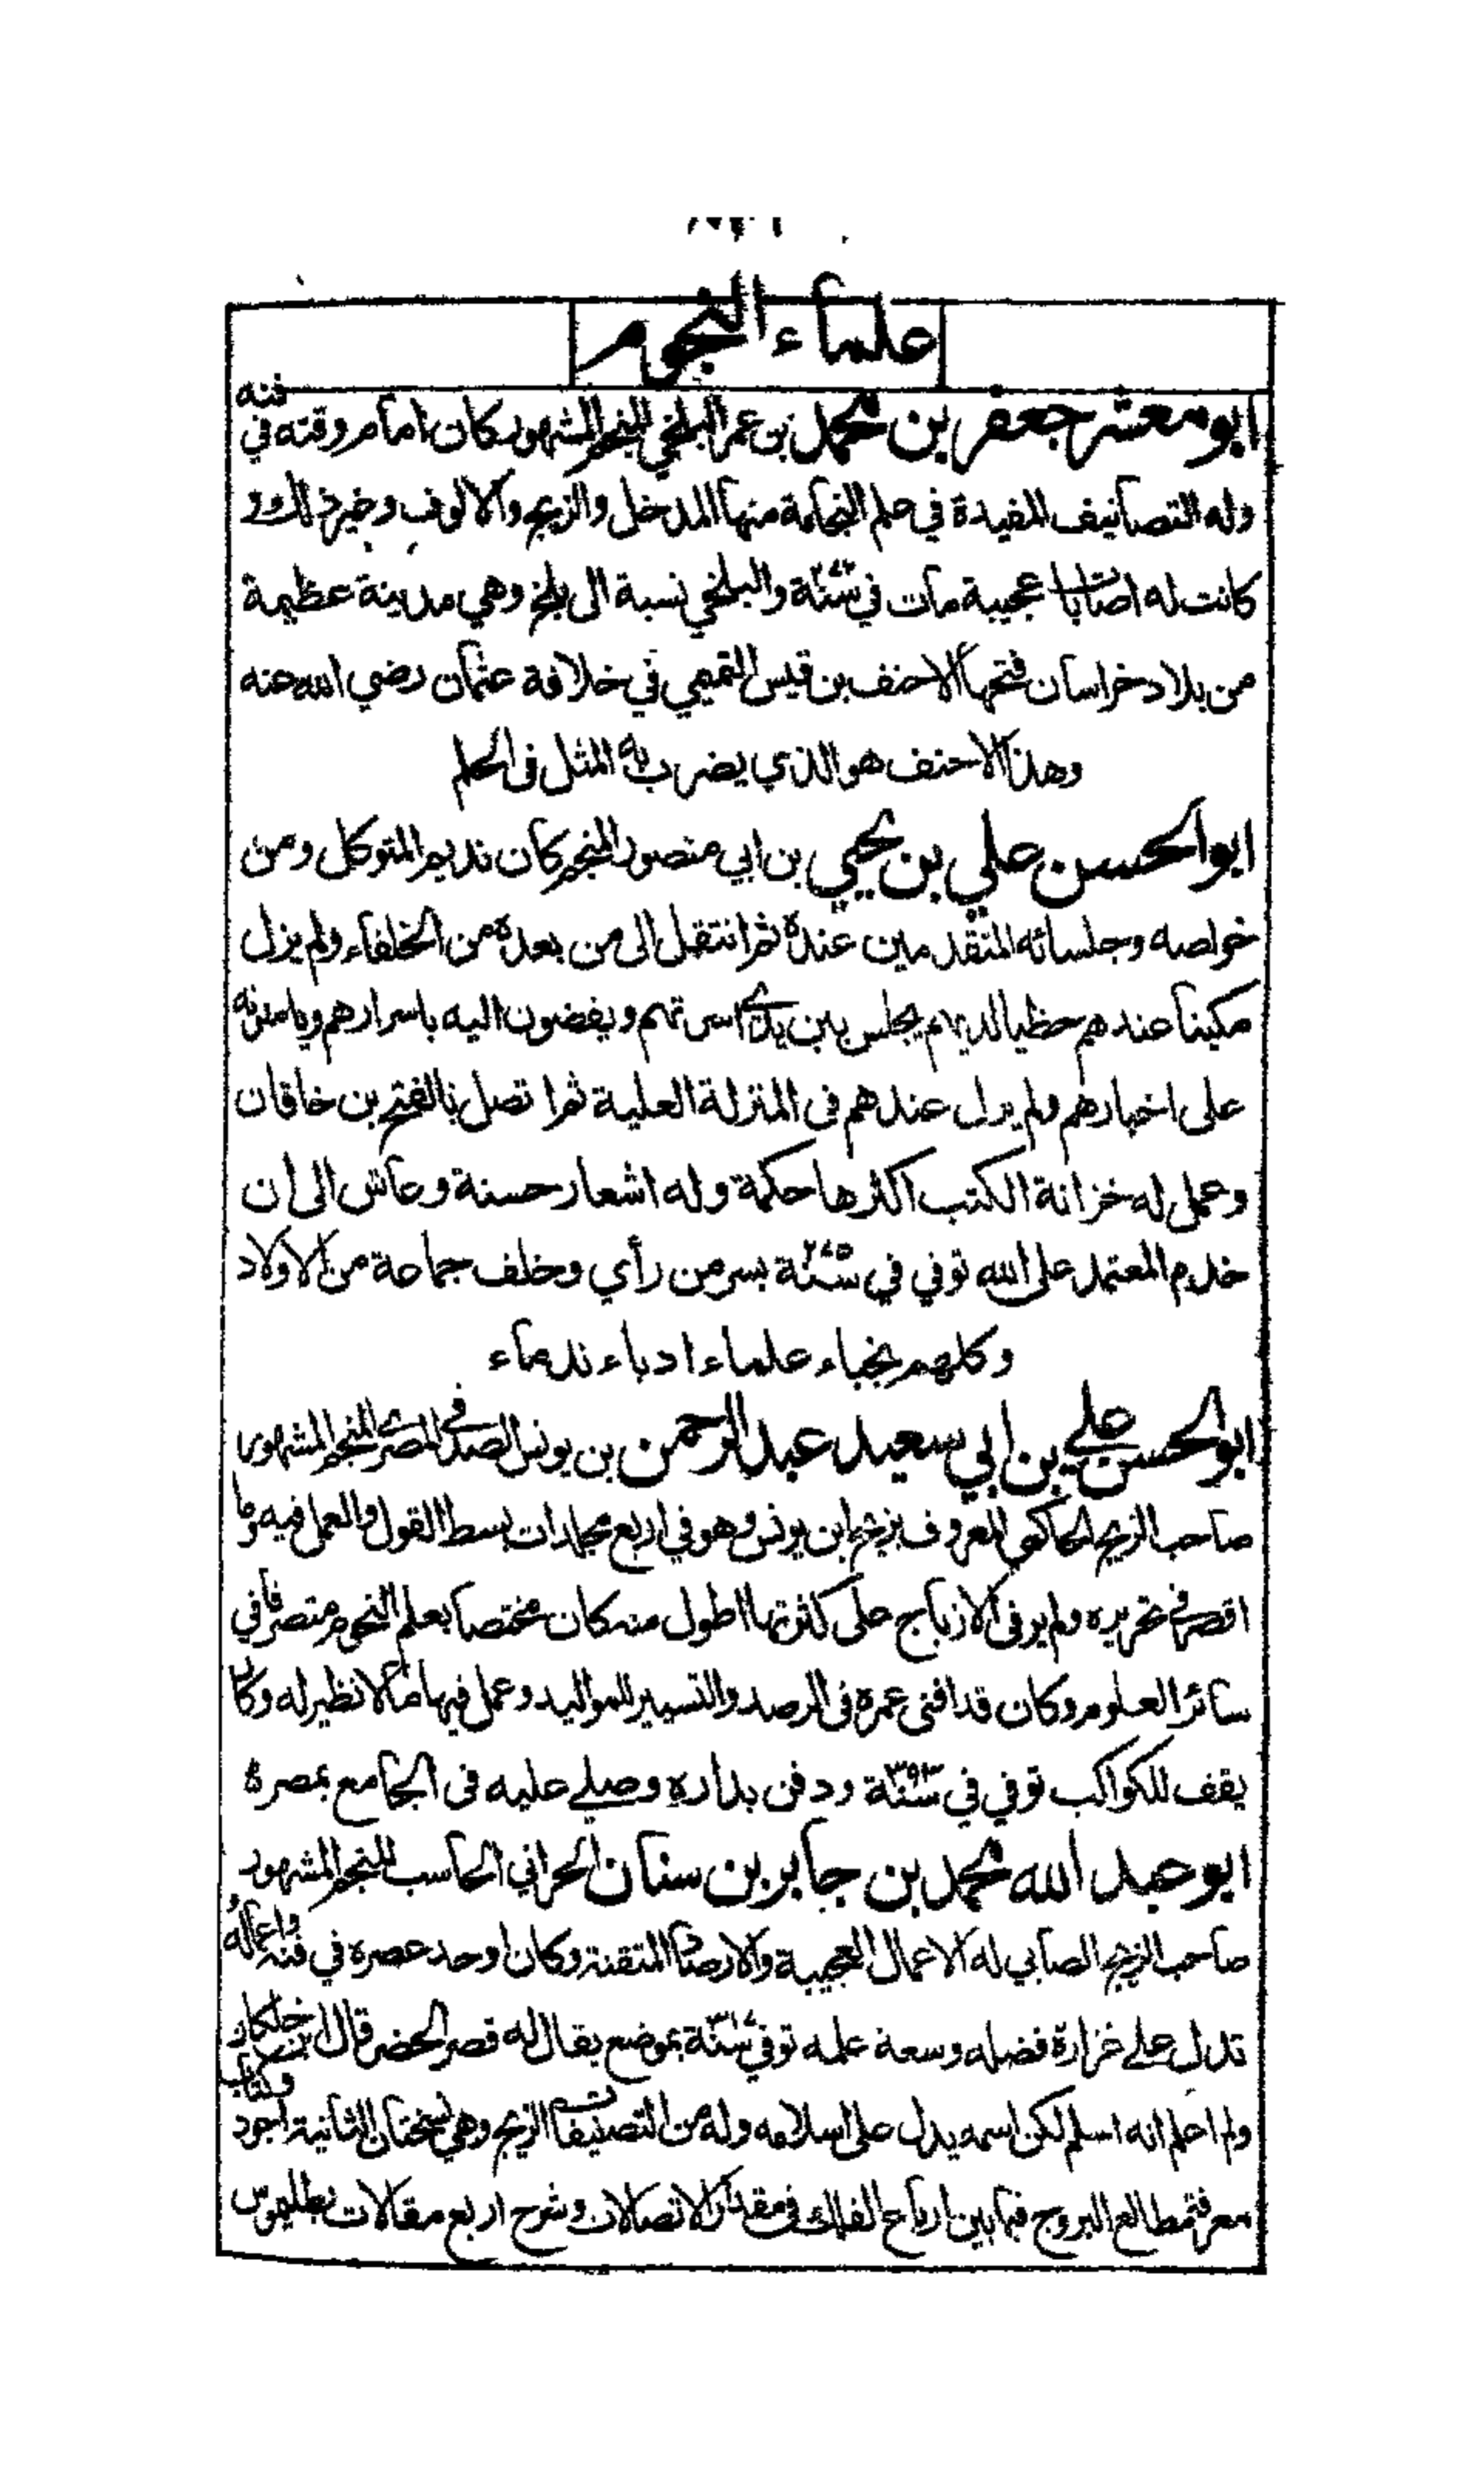 علماء النجوم
ابو معشر جعفر بن محمد بن عمر البلخي المنجم المشهور كان امام وقته في فنه
وله التصانيف المفيدة في علم النجامة منها المدخل والزيج والالوف وغير ذلك و
كانت له اصابات عجيبة مات في سنة ٢٧٢ والبلخي نسبة الى بلخ وهي مدينة عظيمة
من بلاد خراسان فتحها الاحنف بن قيس التميمي في خلافة عثمان رضي الله عنه
وهذا الاحنف هو الذي يضرب به المثل فى الحلم
ابو الحسن علي بن يحيي بن ابي منصور المنجم كان نديم المتوكل ومن
خواصه وجلسائه المتقدمين عنده ثم انتقل الى من بعده من الخلفاء ولم يزل
مكينا عندهم حظيا لديهم يجلس بين يدي اسرتهم ويفضون اليه باسرارهم ويامنونه
على اخبارهم ولم يزل عندهم فى المنزلة العلية ثم اتصل بالفتح بن خاقان
وعمل له خزانة الكتب اكثرها حكمة وله اشعار حسنة وعاش الى ان
خدم المعتمد على الله توفي في سنة ٢٧٥ بسر من رأي وخلف جماعة من الاولاد
وكلهم نجباء علماء ادباء ندماء
ابو الحسن علي بن ابي سعيد عبد الرحمن بن يونس الصدفي المصري المنجم المشهور
صاحب الزيج الحاكمي المعروف بزيج ابن يونس وهو في اربع مجلدات بسط القول والعمل فيه وما
اقصر في تحريره ولم ير فى الازياج على كثرتها اطول منه كان مختصا بعلم النجوم متصرفا في
سائر العلوم وكان قد افنى عمره فى الرصد والتسيير للمواليد وعمل فيها ما لا نظير له وكان
يقف للكواكب توفي في سنة ٣٩٣ ودفن بداره وصلي عليه فى الجامع بمصرة
ابو عبد الله محمد بن جابر بن سنان الحراني الحاسب المنجم المشهور
صاحب الزيج الصابي له الاعمال العجيبة والارصاد المتقنة وكان اوحد عصره في فنه واعماله
تدل علي غزارة فضله وسعة علمه توفي سنة ٣١٧ بموضع يقال له قصر الحضر قال ابن خلكان
ولم اعلم انه اسلم لكن اسمه يدل على اسلامه وله من التصنيفات الزيج وهي نسختان الثانية اجود وكتاب
معرفة مطالع البروج فيما بين ارباع الفلك في مقدار الاتصالات وشرح اربع مقالات بطليموس